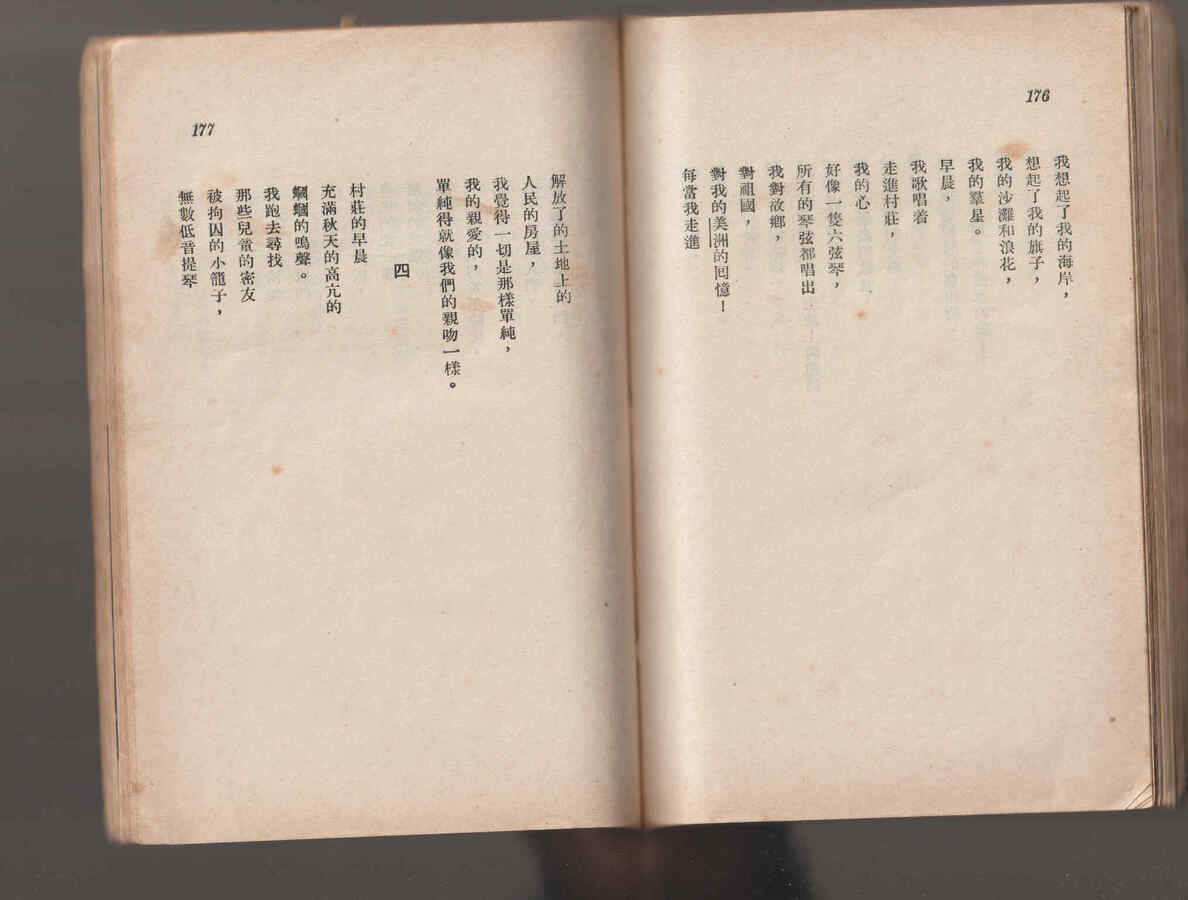 176
我想起了我的海岸，
想起了我的旗子，
我的沙灘和浪花，
我的羣星。
早晨，
我歌唱着
走進村莊，
我的心
好像一隻六弦琴，
所有的琴弦都唱出
我對故鄉，
對祖國，
對我的美洲的回憶！
每當我走進
177
解放了的土地上的
人民的房屋，
我覺得一切是那樣單純，
我的親愛的，
單純得就像我們的親吻一樣。
四
村莊的早晨
充滿秋天的高亢的
蟈蟈的鳴聲。
我跑去尋找
那些兒童的密友
被拘囚的小籠子，
無數低音提琴